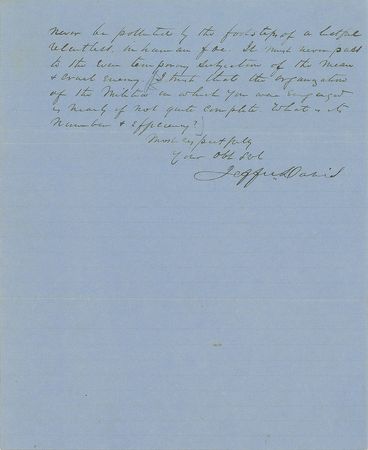 never be polluted by the footsteps of a hateful
relentless, inhuman foe. It must never pass
to the even temporary subjection of the mean
& cruel enemy. (I trust that the organization
of the Militia in which you were engaged
is nearly if not quite complete. What is its
Number & Efficiency?)
Most respectfully
Your Obt Svt
Jeffn Davis